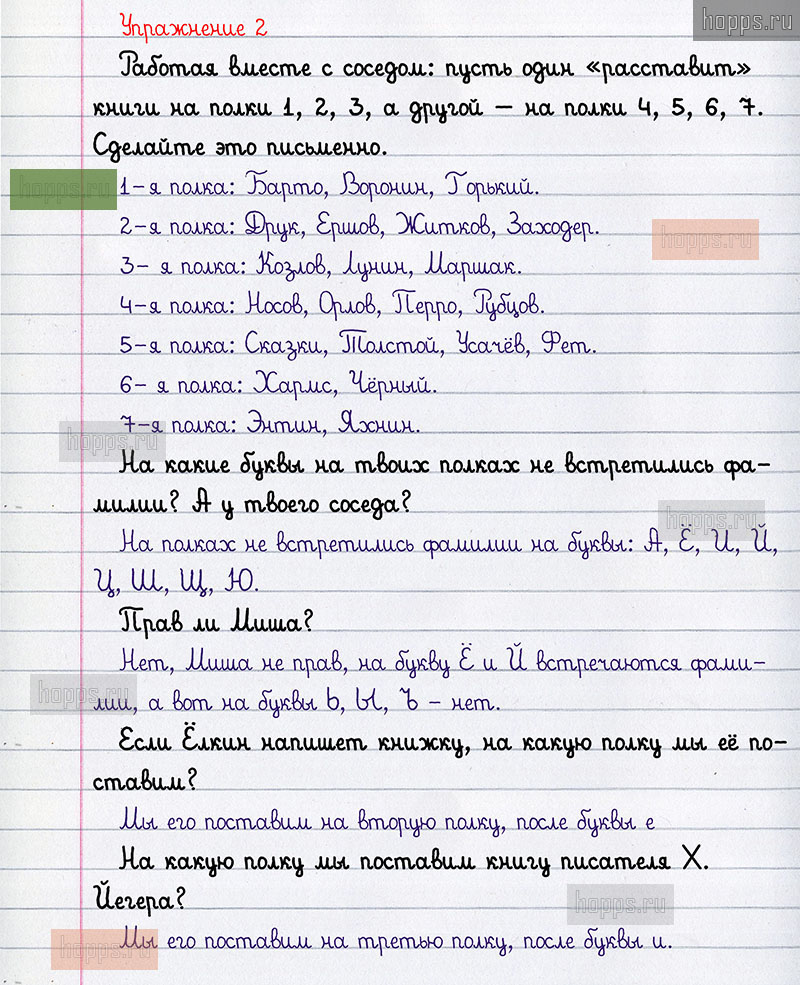 hopps.ru
Упражнение 2
Работая вместе с соседом: пусть один «расставит»
книги на полки 1, 2, 3, а другой — на полки 4, 5, 6, 7.
Сделайте это письменно.
hopps.ru
1-я полка: Барто, Воронин, Горький.
2-я полка: Друк, Ершов, Житков, Заходер.
hopps.ru
3- я полка: Козлов, Лунин, Маршак.
4-я полка: Носов, Орлов, Перро, Рубцов.
5-я полка: Сказки, Толстой, Усачёв, Фет.
6- я полка: Хармс, Чёрный.
7-я полка: Энтин, Яхнин.
hopps.ru
На какие буквы на твоих полках не встретились фа-
милии? А у твоего соседа?
hopps.ru
На полках не встретились фамилии на буквы: А, Ё, И, Й,
Ц, Ш, Щ, Ю.
Прав ли Миша?
Нет, Миша не прав, на букву Ё и Й встречаются фами-
hopps.ru
лии, а вот на буквы Ь, Ы, Ъ – нет.
Если Ёлкин напишет книжку, на какую полку мы её по-
ставим?
Мы его поставим на вторую полку, после буквы е
На какую полку мы поставим книгу писателя Х.
Йегера?
hopps.ru
Мы его поставим на третью полку, после буквы и.
hopps.ru